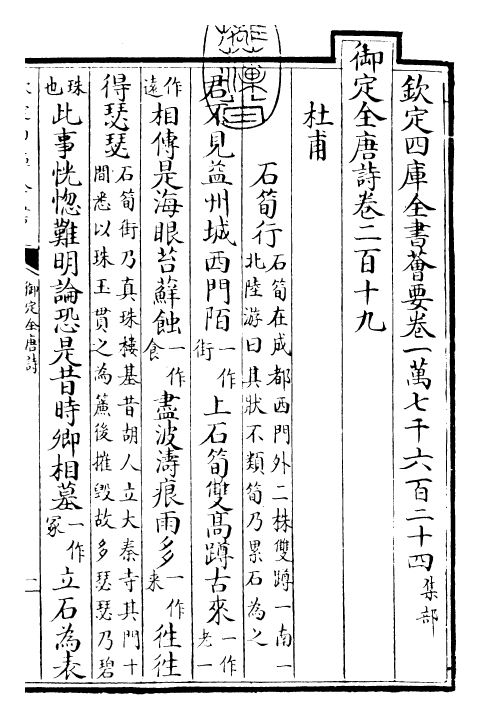 欽定四庫全書薈要卷一萬七千六百二十四 集部
御定全唐詩卷二百十九
杜甫
石筍行 石筍在成都西門外二株雙蹲一南一
北陸游曰其狀不類筍乃累石為之
君不見益州城西門陌一作街上石筍雙髙蹲古來一作老一
作遠相傳是海眼苔蘚蝕一作食盡波濤痕雨多一作來徃徃
得瑟瑟 石筍街乃真珠樓基昔胡人立大秦寺其門十
間悉以珠玉貫之為簾後摧毀故多瑟瑟乃碧
珠也此事恍惚難明論恐是昔時卿相墓一作冢立石為表
御定全唐詩